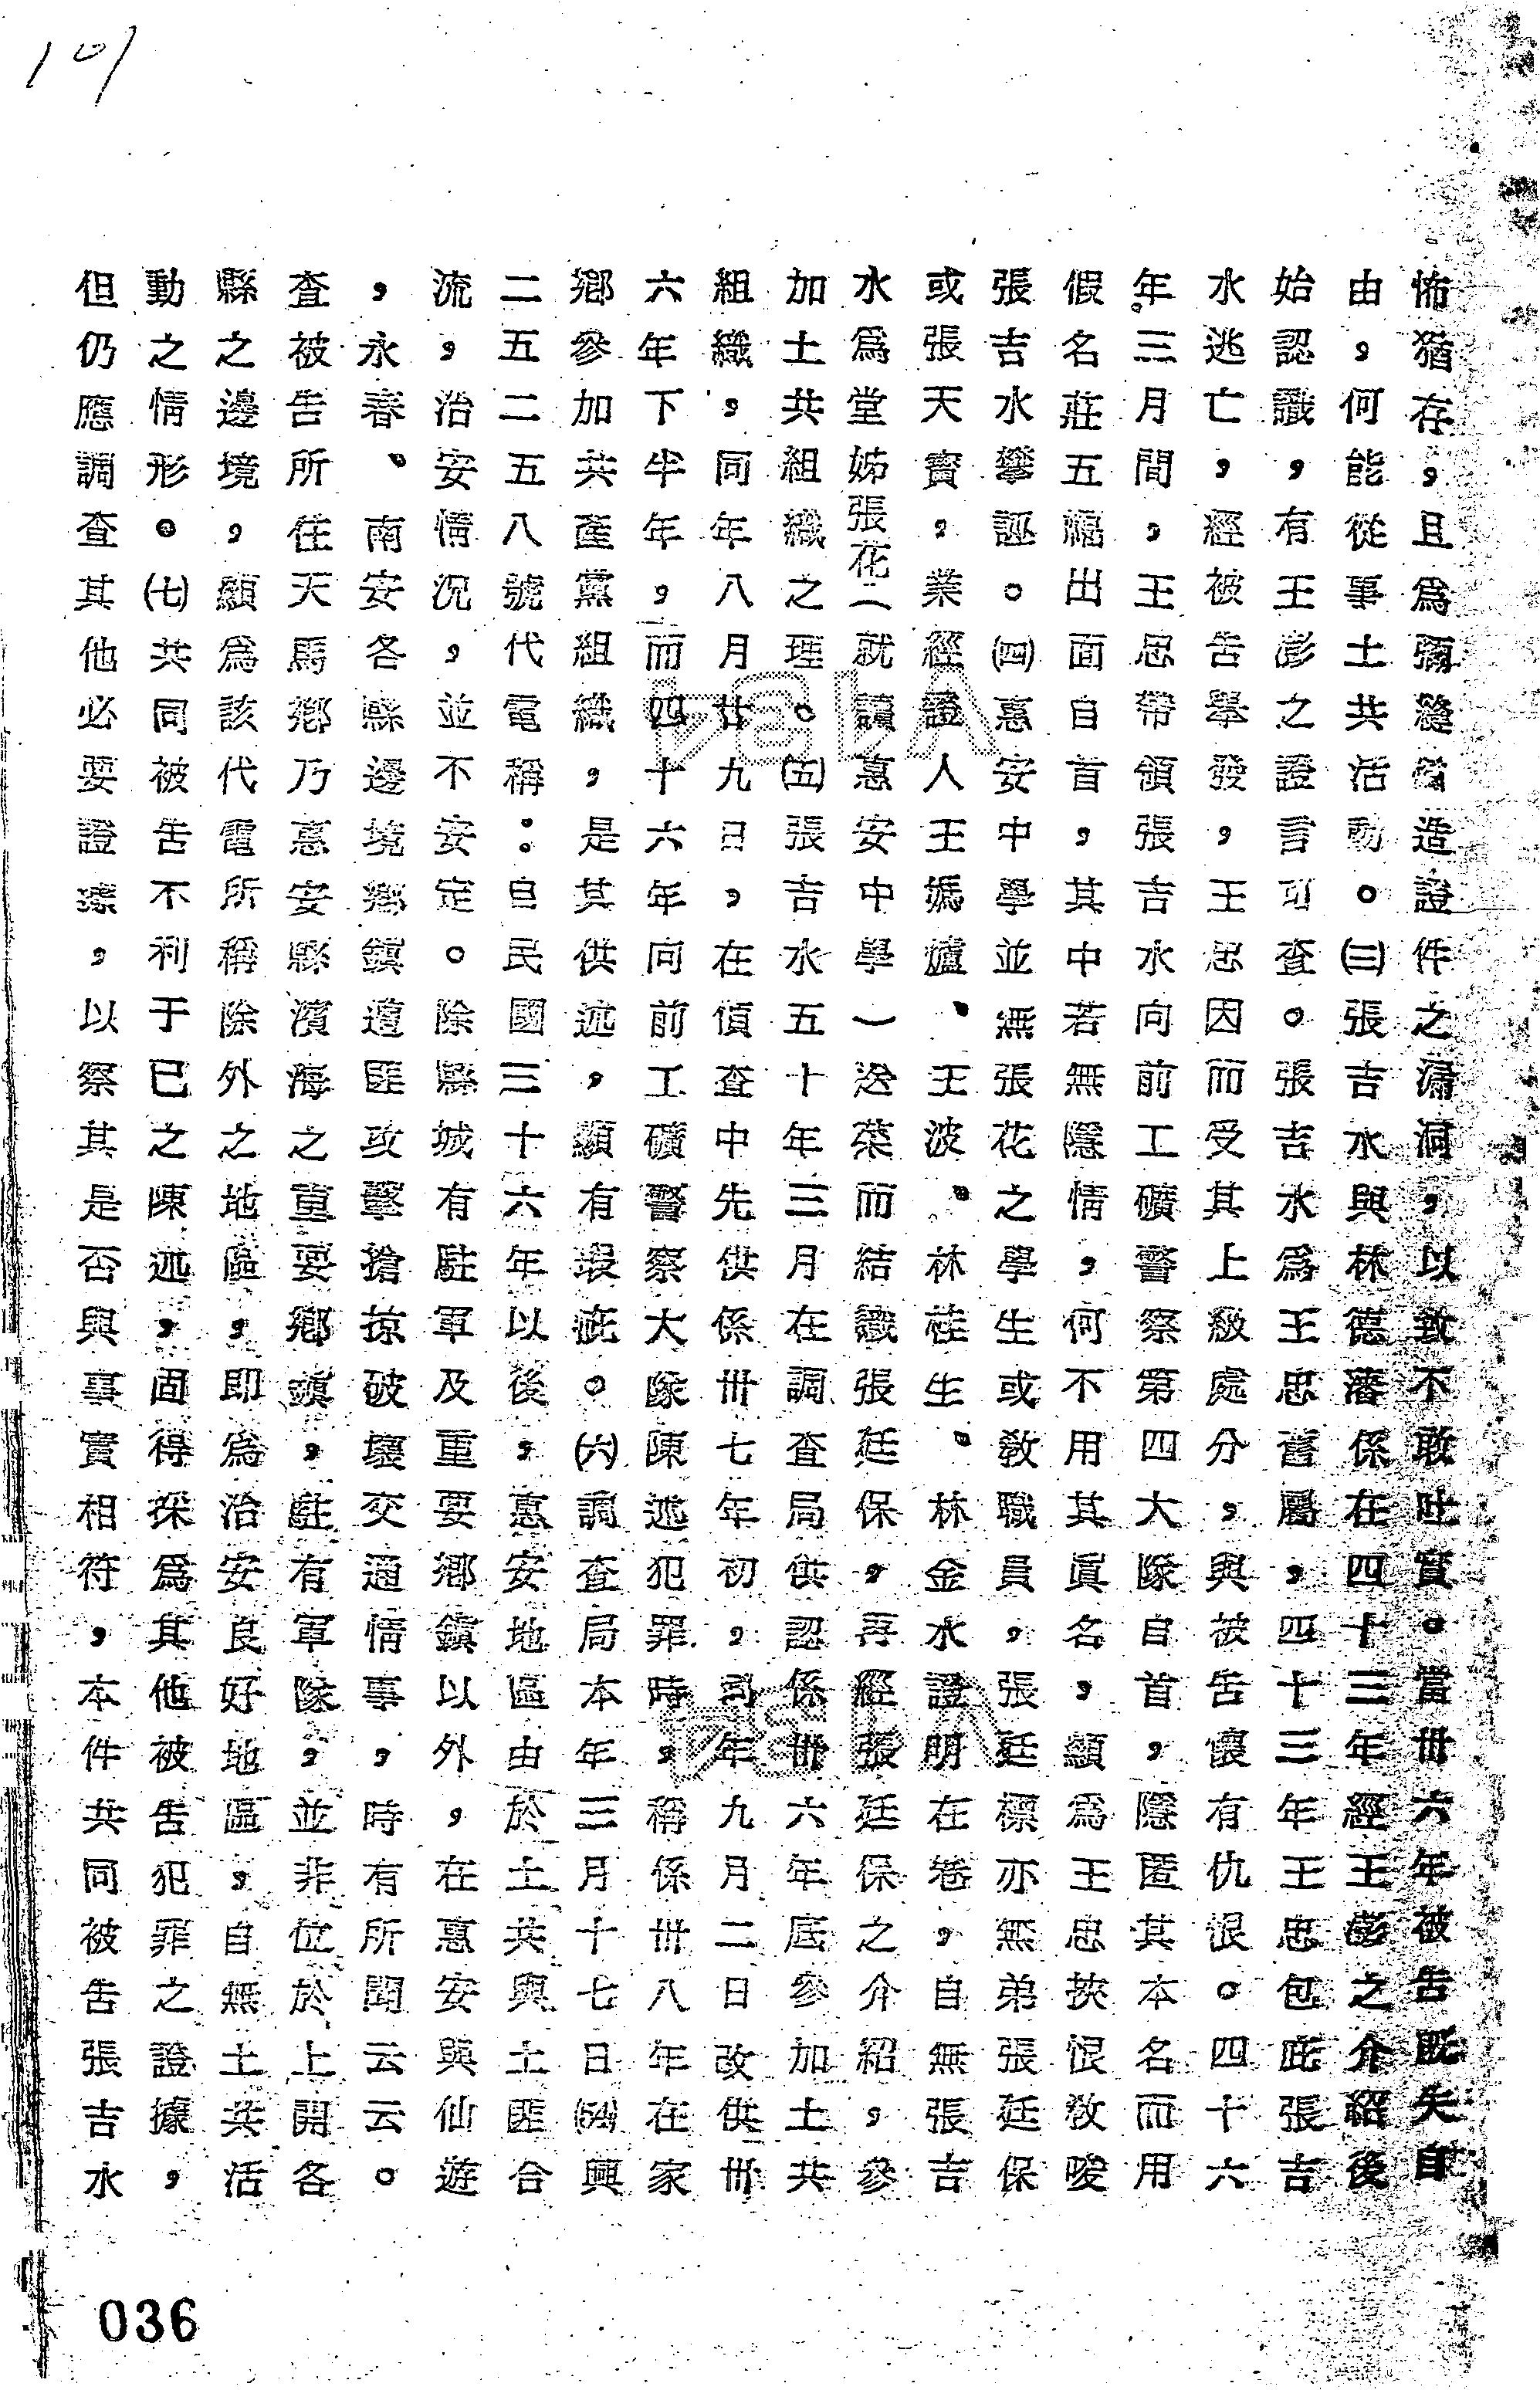 101
怖猶存，且為彌縫僞造證件之漏洞，以致不敢吐實。當卅六年被告既失自
由，何能從事土共活動。㈢張吉水與林德潘係在四十三年經王澎之介紹後
始認識，有王澎之證言可查。張吉水為王忠舊屬，四十三年王忠包庇張吉
水逃亡，經被告舉發，王忠因而受其上級處分，與被告懷有仇恨。四十六
年三月間，王忠帶領張吉水向前工礦警察第四大隊自首，隱匿其本名而用
假名莊五福。出面自首，其中若無隱情，何不用其真名，顯為王忠挾恨教唆
張吉水攀誣。㈣惠安中學並無張花之學生或教職員，張廷標亦無弟張廷保
或張天寶，業經證人王媽爐、王波、林桂生、林金水證明在卷，自無張吉
水為堂姊張花二就讀惠安中學一送菜而結識張廷保，再經張廷保之介紹，參
加土共組織之理。㈤張吉水五十年三月在調查局供認係卅六年底參加土共
組織，同年八月廿九日，在偵查中先供係卅七年初，司年九月二日改供卅
六年下半年，而四十六年向前工礦警察大隊陳述犯罪時，稱係卅八年在家
鄉參加共產黨組織，是其供述，顯有瑕疵。㈥調查局本年三月十七日(54)興
二五二五八號代電稱：自民國三十六年以後，惠安地區由於土共與土匪合
流，治安情況，並不安定。除縣城有駐軍及重要鄉鎮以外，在惠安與仙遊
，永春、南安各縣邊境鄉鎮遭匪攻擊搶掠破壞交通情事，時有所聞云云。
查被告所住天馬鄉乃惠安縣濱海之重要鄉鎮，駐有軍隊，並非位於上開各
縣之邊境，顯為該代電所稱除外之地區，即為治安良好地區，自無土共活
動之情形。㈦共同被告不利于已之陳述，固得採為其他被告犯罪之證據，
但仍應調查其他必要證據，以察其是否與事實相符，本件共同被告張吉水
036